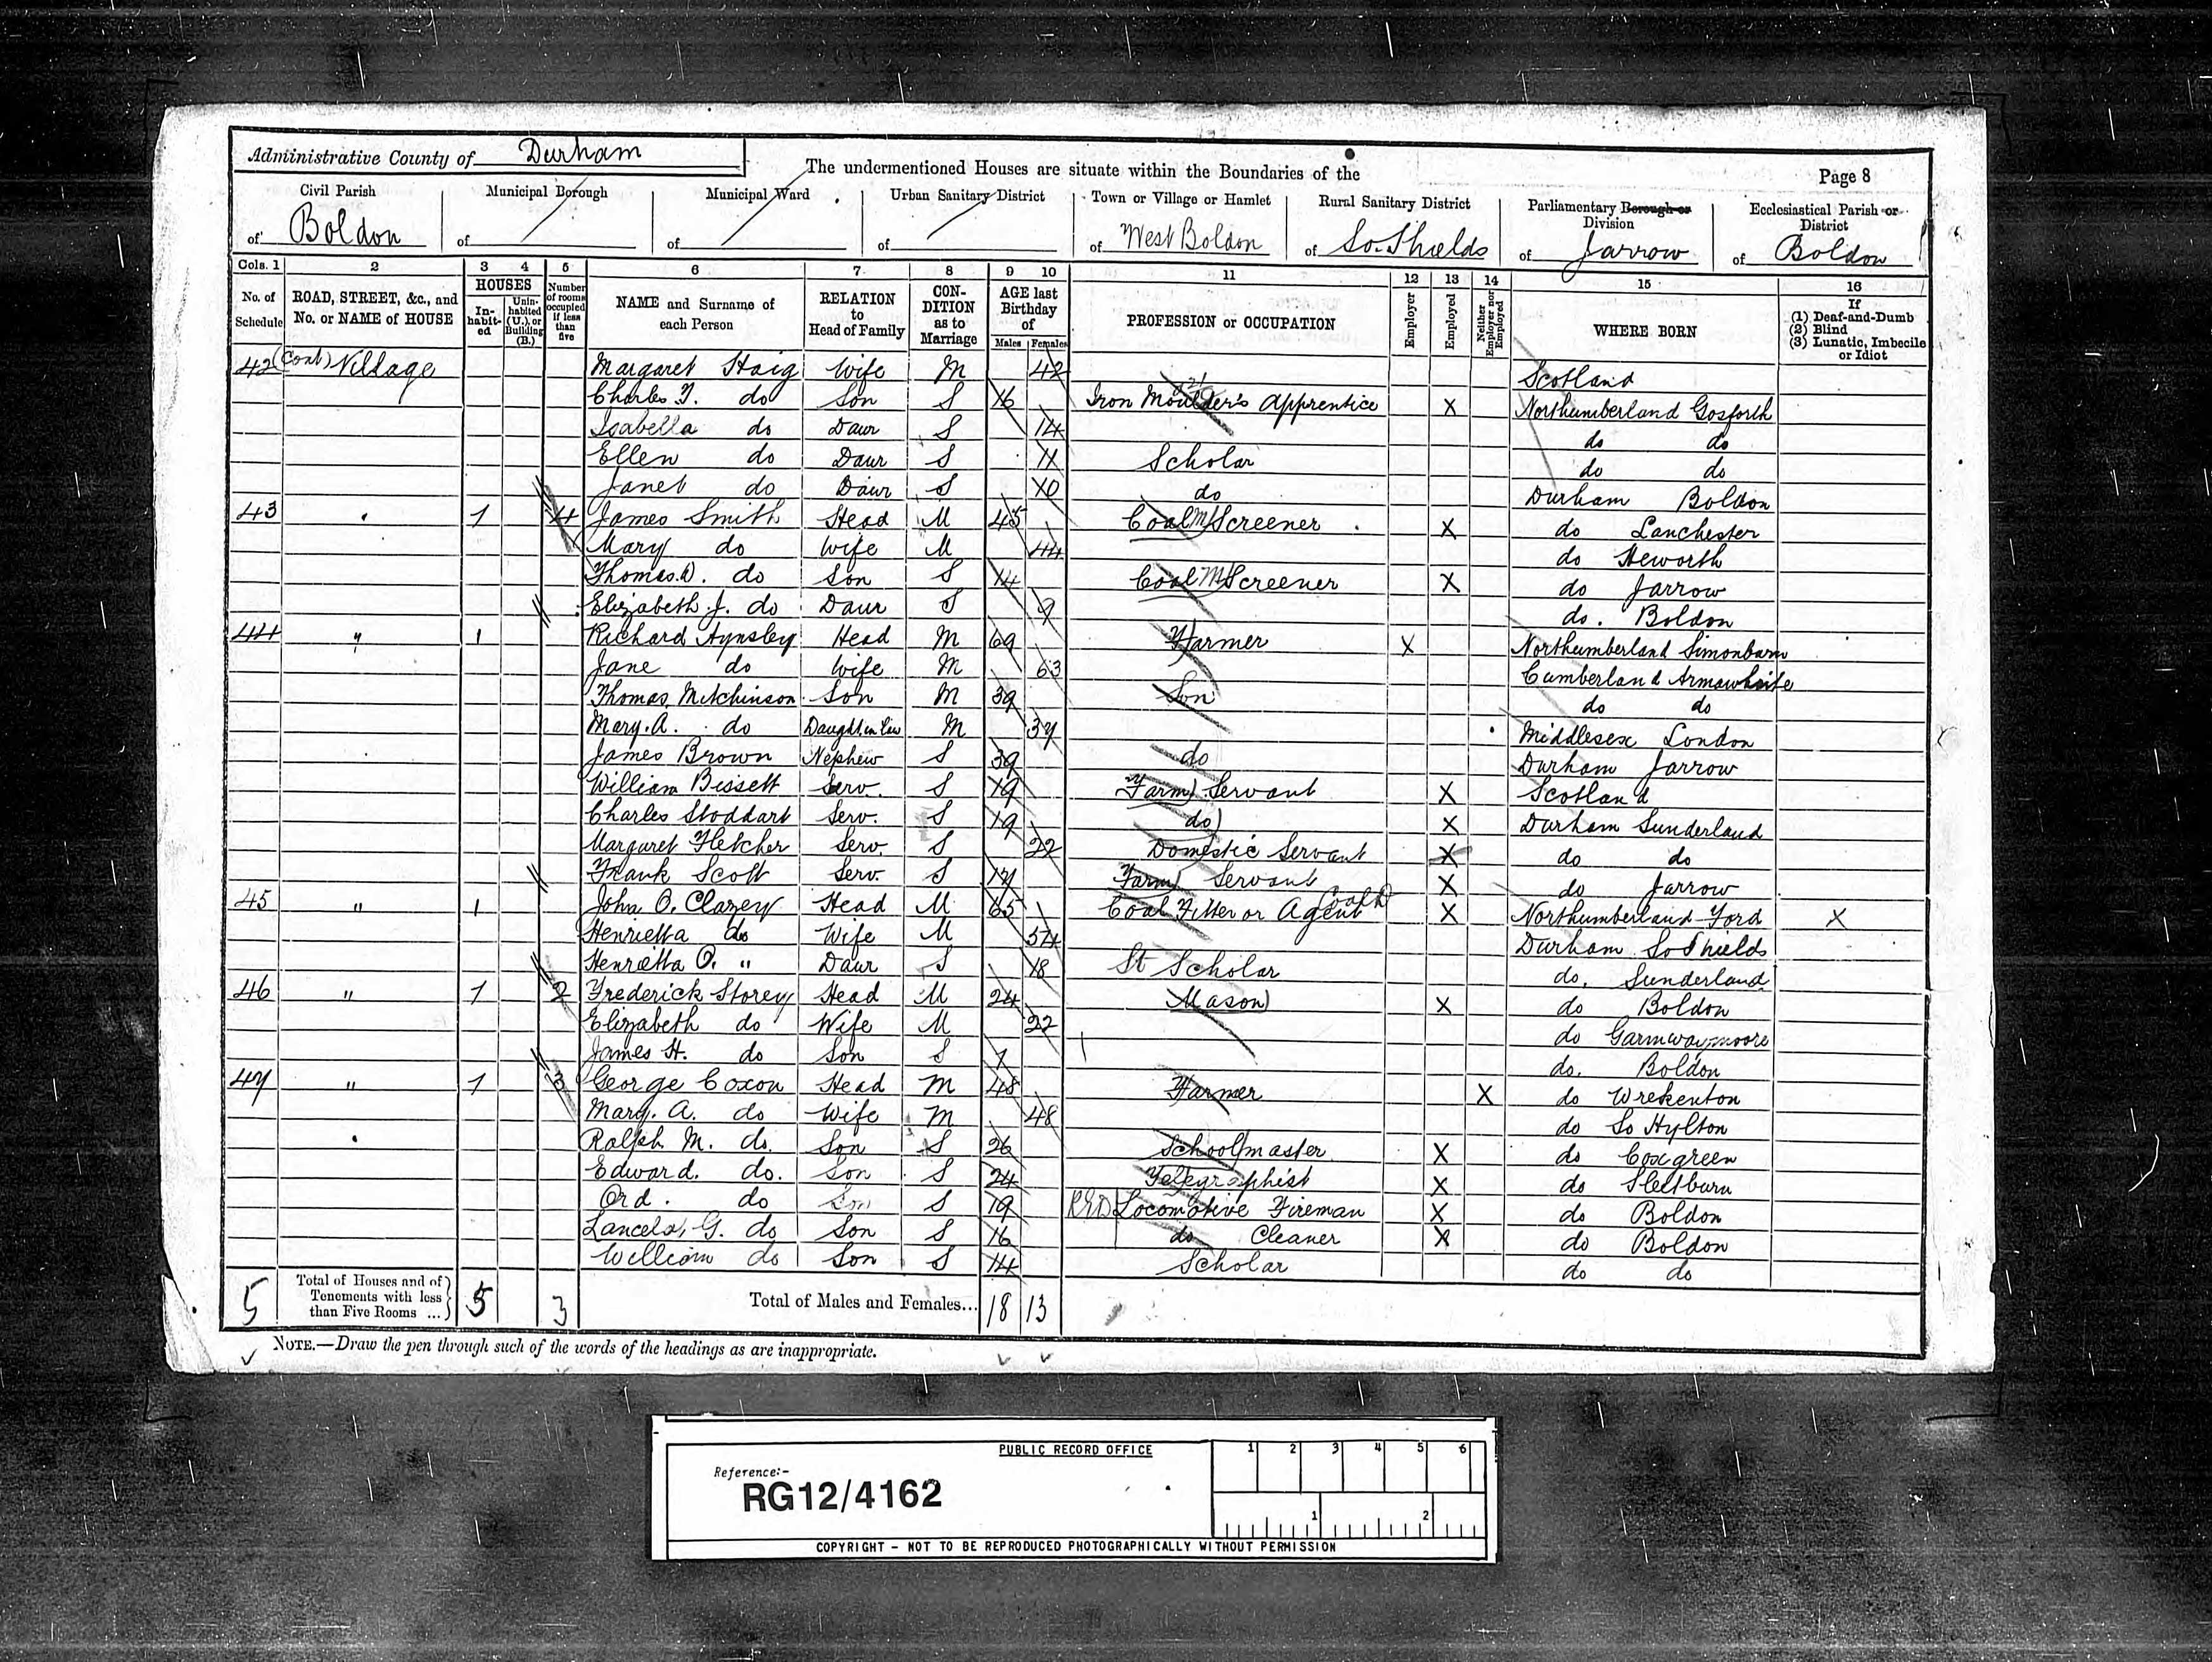 Administrative County of Durham
The undermentioned Houses are situate within the Boundaries of the
Page 8
Civil Parish of Boldon
Municipal Borough of
Municipal Ward of
Urban Sanitary District of
Town or Village or Hamlet of West Boldon
Rural Sanitary District of So. Shields
Parliamentary Borough or Division of Jarrow
Ecclesiastical Parish or District of Boldon
Cols. 1 2 3 4 5 6 7 8 9 10 11 12 13 14 15 16
No. of Schedule
ROAD, STREET, &c., and No. or NAME of HOUSE
HOUSES
In-habit-ed
Unin-habited (U.), or Building (B.)
Number of rooms occupied if less than five
NAME and Surname of each Person
RELATION to Head of Family
CON-DITION as to Marriage
AGE last Birthday of
Males Females
PROFESSION or OCCUPATION
Employer
Employed
Neither Employer nor Employed
WHERE BORN
If (1) Deaf-and-Dumb (2) Blind (3) Lunatic, Imbecile or Idiot
42 (Cont) Village Margaret Haig Wife M 42 Scotland
Charles T. do Son S 16 Iron Moulder's Apprentice X Northumberland Gosforth
Isabella do Daur S 14 do do
Ellen do Daur S 11 Scholar do do
Janet do Daur S 10 do Durham Boldon
43 " 1 4 James Smith Head M 45 Coal Screener X do Lanchester
Mary do Wife M 44 do Heworth
Thomas. W. do Son S 14 Coal Screener X do Jarrow
Elizabeth J. do Daur S 9 do. Boldon
44 " 1 Richard Aynsley Head M 69 Farmer X Northumberland Simonburn
Jane do Wife M 63 Cumberland Armawhaite
Thomas Mitchinson Son M 39 Son do do
Mary. A. do Daught. in Law M 37 Middlesex London
James Brown Nephew S 39 do Durham Jarrow
William Bissett Serv. S 19 Farm Servant X Scotland
Charles Stoddart Serv. S 19 do X Durham Sunderland
Margaret Fletcher Serv. S 22 Domestic Servant X do do
Frank Scott Serv. S 17 Farm Servant X do Jarrow
45 " 1 John O. Clazey Head M 65 Coal Fitter or Agent X Northumberland Ford X
Henrietta do Wife M 54 Durham So Shields
Henrietta O. " Daur S 18 St Scholar do. Sunderland
46 " 1 2 Frederick Storey Head M 24 Mason X do Boldon
Elizabeth do Wife M 22 do Garmwaymoore
James H. do Son S 1 do. Boldon
47 " 1 3 George Coxon Head M 48 Farmer X do Wrekenton
Mary. A. do Wife M 48 do So Hylton
Ralph M. do. Son S 26 Schoolmaster X do Coxgreen
Edward. do. Son S 24 Telegraphist X do Sleetburn
Ord. do Son S 19 Locomotive Fireman X do Boldon
Lancelot, G. do Son S 16 do Cleaner X do Boldon
William do Son S 14 Scholar do do
5 Total of Houses and of Tenements with less than Five Rooms ... 5 3 Total of Males and Females... 18 13
NOTE.—Draw the pen through such of the words of the headings as are inappropriate.
PUBLIC RECORD OFFICE
1 2 3 4 5 6
Reference:-
RG12/4162
1 2
COPYRIGHT - NOT TO BE REPRODUCED PHOTOGRAPHICALLY WITHOUT PERMISSION